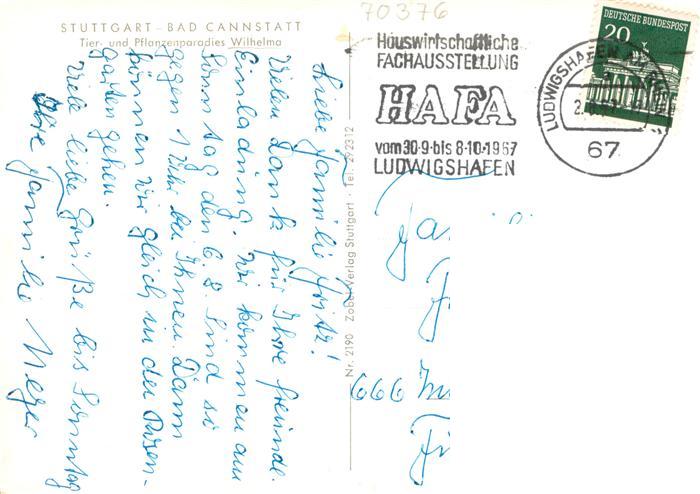 STUTTGART - BAD CANNSTATT
Tier- und Pflanzenparadies Wilhelma
Liebe Familie Fritz!
Vielen Dank für Ihre freundl.
Einladung. Wir kommen am
Sonntag den 6. 8. sind so
gegen 1 Uhr bei Ihnen Dann
können wir gleich in den Rosen-
garten gehen.
Viele liebe Grüße bis Sonntag
Ihre Familie Metzger
Nr. 2190 Zobel-Verlag Stuttgart - Tel. 292312
70376
Hauswirtschaftliche
FACHAUSSTELLUNG
HAFA
vom 30·9·bis 8·10·1967
LUDWIGSHAFEN
DEUTSCHE BUNDESPOST
20
LUDWIGSHAFEN
67
666